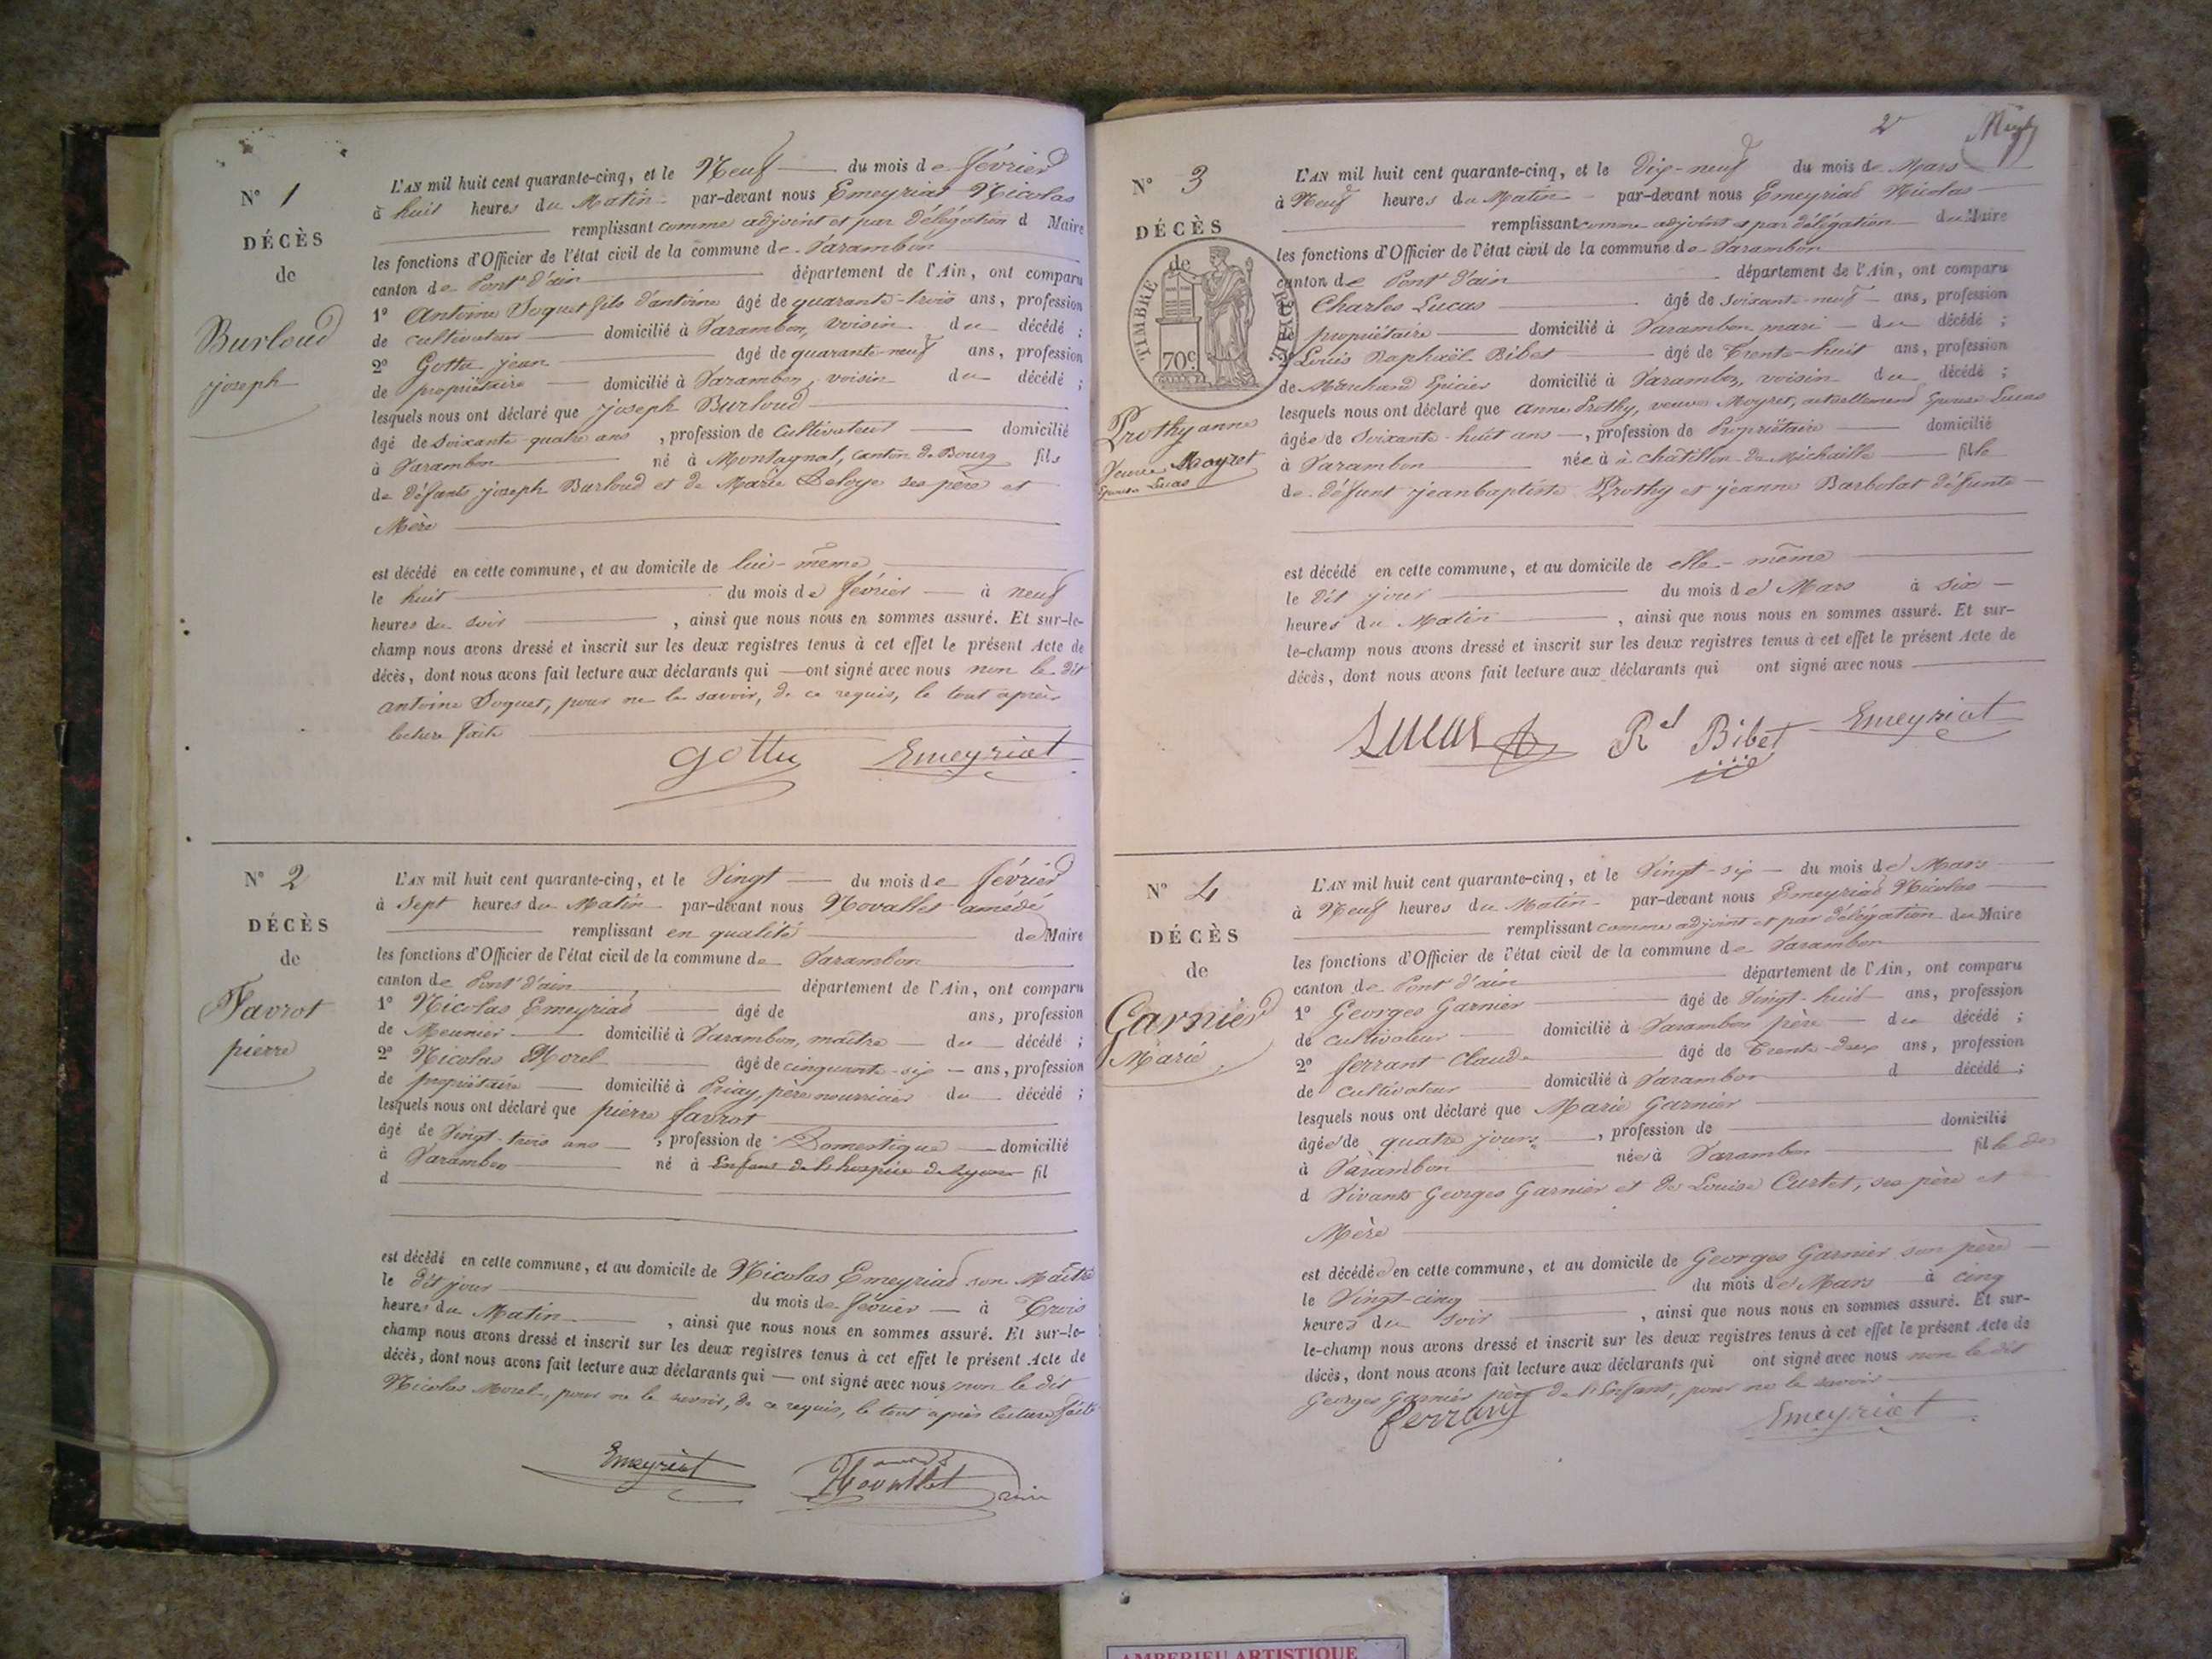 N° 1
DÉCÈS
de
Burloud
joseph
L'AN mil huit cent quarante-cinq, et le Neuf du mois de février
à huit heures du Matin par-devant nous Emeyriat Nicolas
remplissant comme adjoint et par délégation d Maire
les fonctions d'Officier de l'état civil de la commune de Varambon
canton de Pont d'ain département de l'Ain, ont comparu
1° Antoine Soquet fils d'antoine âgé de quarante-trois ans, profession
de cultivateur domicilié à Varambon, voisin du décédé ;
2° Gottu jean âgé de quarante-neuf ans, profession
de propriétaire domicilié à Varambon, voisin du décédé ;
lesquels nous ont déclaré que joseph Burloud
âgé de soixante-quatre ans, profession de Cultivateur domicilié
à Varambon né à Montagnat, canton de Bourg fils
de défunts joseph Burloud et de Marie Deloye ses père et
Mère
est décédé en cette commune, et au domicile de lui-même
le huit du mois de février à neuf
heures du soir, ainsi que nous nous en sommes assuré. Et sur-le-
champ nous avons dressé et inscrit sur les deux registres tenus à cet effet le présent Acte de
décès, dont nous avons fait lecture aux déclarants qui ont signé avec nous non le dit
antoine Soquet, pour ne le savoir, de ce requis, le tout après
lecture faite
Gottu Emeyriat
N° 2
DÉCÈS
de
Favrot
pierre
L'AN mil huit cent quarante-cinq, et le Vingt du mois de février
à Sept heures du Matin par-devant nous Novallet amédé
remplissant en qualité de Maire
les fonctions d'Officier de l'état civil de la commune de Varambon
canton de Pont d'ain département de l'Ain, ont comparu
1° Nicolas Emeyriat âgé de ans, profession
de Meunier domicilié à Varambon, maître du décédé ;
2° Nicolas Morel âgé de cinquante-six ans, profession
de propriétaire domicilié à Priay, père nourricier du décédé ;
lesquels nous ont déclaré que pierre favrot
âgé de Vingt-trois ans, profession de Domestique domicilié
à Varambon né à Enfant de l'hospice de Lyon fil
d
est décédé en cette commune, et au domicile de Nicolas Emeyriat son Maître
le dit jour du mois de février à Trois
heures du Matin, ainsi que nous nous en sommes assuré. Et sur-le-
champ nous avons dressé et inscrit sur les deux registres tenus à cet effet le présent Acte de
décès, dont nous avons fait lecture aux déclarants qui ont signé avec nous, non le dit
Nicolas Morel, pour ne le savoir, de ce requis, le tout après lecture faite
Emeyriat Novallet
2
N° 3
DÉCÈS
de
TIMBRE ROYAL
70c.
Prothy anne
Veuve Moyret
Epouse Lucas
L'AN mil huit cent quarante-cinq, et le Dix-neuf du mois de Mars
à Neuf heures du Matin par-devant nous Emeyriat Nicolas
remplissant comme adjoint et par délégation du Maire
les fonctions d'Officier de l'état civil de la commune de Varambon
canton de Pont d'ain département de l'Ain, ont comparu
Charles Lucas âgé de soixante-neuf ans, profession
propriétaire domicilié à Varambon mari du décédé ;
2° Louis Raphaël Bibet âgé de Trente-huit ans, profession
de Marchand Epicier domicilié à Varambon, voisin du décédé ;
lesquels nous ont déclaré que anne Prothy, veuve Moyret, actuellement Epouse Lucas
âgée de Soixante-huit ans, profession de Propriétaire domicilié
à Varambon née à à chatillon de Michaille fille
de défunt jean baptiste Prothy et jeanne Barbolat défunte
est décédé en cette commune, et au domicile de elle-même
le dit jour du mois de Mars à six
heures du Matin, ainsi que nous nous en sommes assuré. Et sur-
le-champ nous avons dressé et inscrit sur les deux registres tenus à cet effet le présent Acte de
décès, dont nous avons fait lecture aux déclarants qui ont signé avec nous
Lucas Rel Bibet Emeyriat
N° 4
DÉCÈS
de
Garnier
Marie
L'AN mil huit cent quarante-cinq, et le Vingt-six du mois de Mars
à Neuf heures du Matin par-devant nous Emeyriat Nicolas
remplissant comme adjoint et par délégation du Maire
les fonctions d'Officier de l'état civil de la commune de Varambon
canton de Pont d'ain département de l'Ain, ont comparu
1° Georges Garnier âgé de Vingt-huit ans, profession
de cultivateur domicilié à Varambon père du décédé ;
2° ferrant Claude âgé de Trente-deux ans, profession
de cultivateur domicilié à Varambon d décédé ;
lesquels nous ont déclaré que Marie Garnier
âgée de quatre jours, profession de domicilié
à Varambon née à Varambon fille de
d Vivants Georges Garnier et de Louise Curtet, ses père et
Mère
est décédée en cette commune, et au domicile de Georges Garnier son père
le Vingt-cinq du mois de Mars à cinq
heures du soir, ainsi que nous nous en sommes assuré. Et sur-
le-champ nous avons dressé et inscrit sur les deux registres tenus à cet effet le présent Acte de
décès, dont nous avons fait lecture aux déclarants qui ont signé avec nous non le dit
Georges Garnier père de l'Enfant, pour ne le savoir
ferrant Emeyriat
AMBERIEU ARTISTIQUE